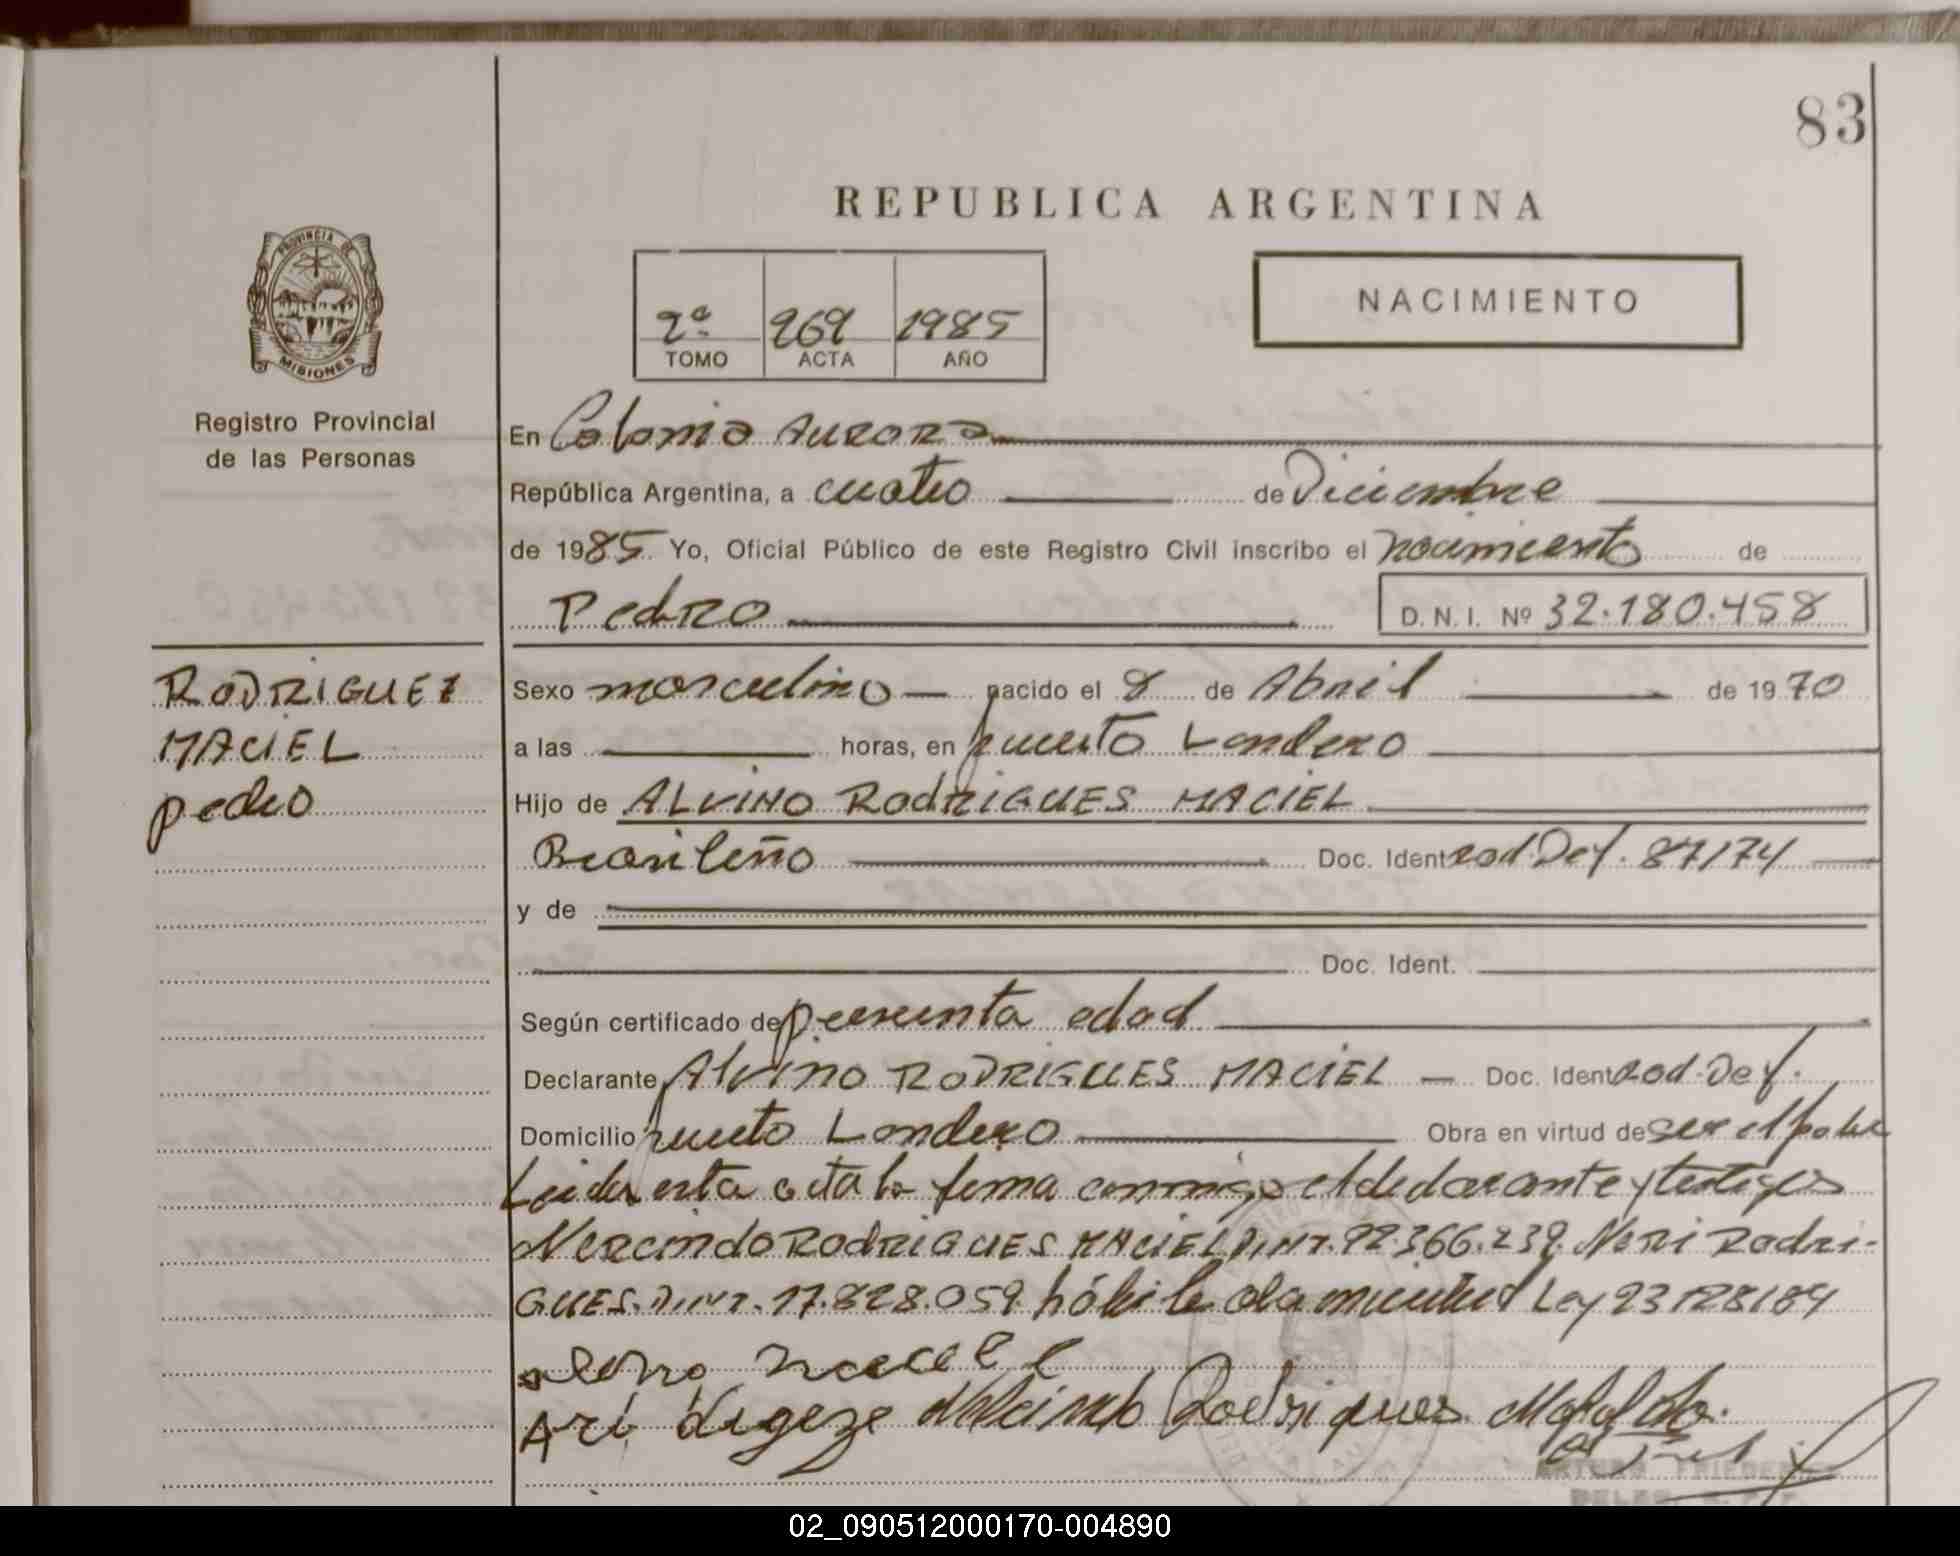 83
REPUBLICA ARGENTINA
PROVINCIA DE
MISIONES
2ª 269 1985
TOMO ACTA AÑO
NACIMIENTO
Registro Provincial
de las Personas
En Colonia Aurora
República Argentina, a cuatro de Diciembre
de 1985 Yo, Oficial Público de este Registro Civil inscribo el nacimiento de
Pedro D.N.I. Nº 32.180.458
RODRIGUEZ
MACIEL
pedro
Sexo masculino nacido el 8 de Abril de 1970
a las horas, en puerto Londero
Hijo de ALVINO RODRIGUES MACIEL
Brasileño Doc. Ident. 87174
y de
Doc. Ident.
Según certificado de presunta edad
Declarante Alvino RODRIGUES MACIEL Doc. Ident
Domicilio puerto Londero Obra en virtud de ser el padre
Leida esta acta la firma conmigo el declarante y testigos
RODRIGUES MACIEL 92.366.239. Neri Rodri-
GUES. 17.828.059. Ley 23128/84
Rodrigues
ARTURO
02_090512000170-004890